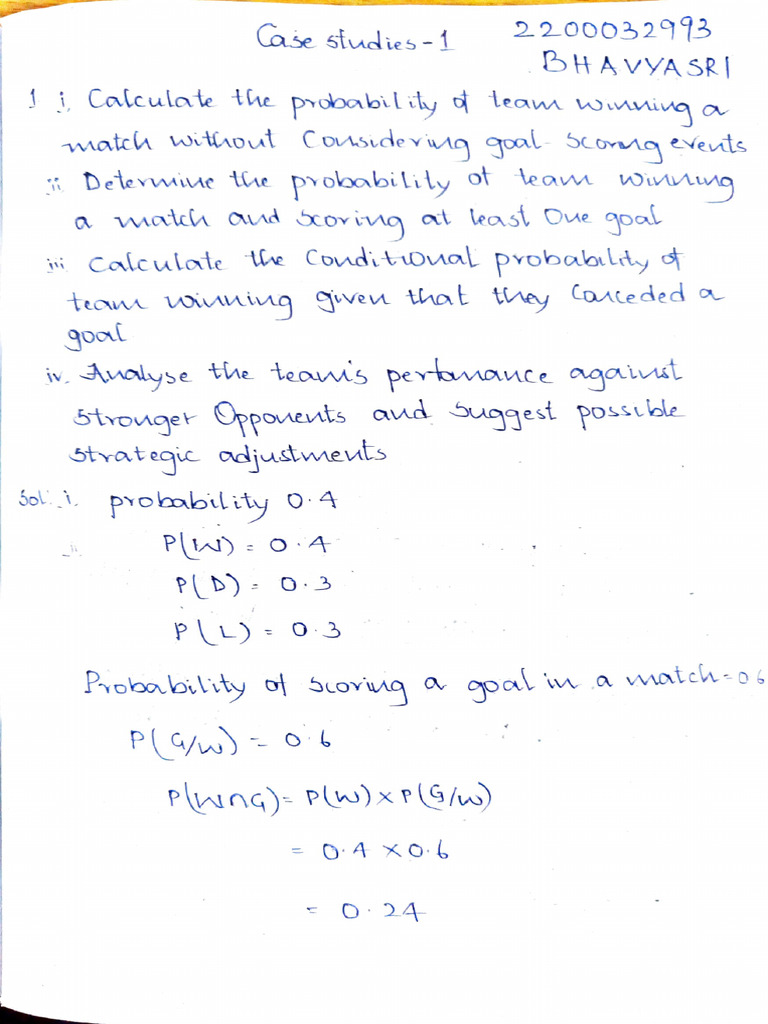 Case studies-1 2200032993
BHAVYASRI
1 i, Calculate the probability of team winning a
match without Considering goal-scoring events
ii Determine the probability of team winning
a match and scoring at least One goal
iii Calculate the Conditional probability of
team winning given that they Conceded a
goal
iv. Analyse the team's performance against
Stronger Opponents and suggest possible
strategic adjustments
Sol: i. probability 0.4
P(W) = 0.4
P(D) = 0.3
P(L) = 0.3
Probability of scoring a goal in a match = 0.6
P(G/W) = 0.6
P(W∩G) = P(W) × P(G/W)
= 0.4 × 0.6
= 0.24